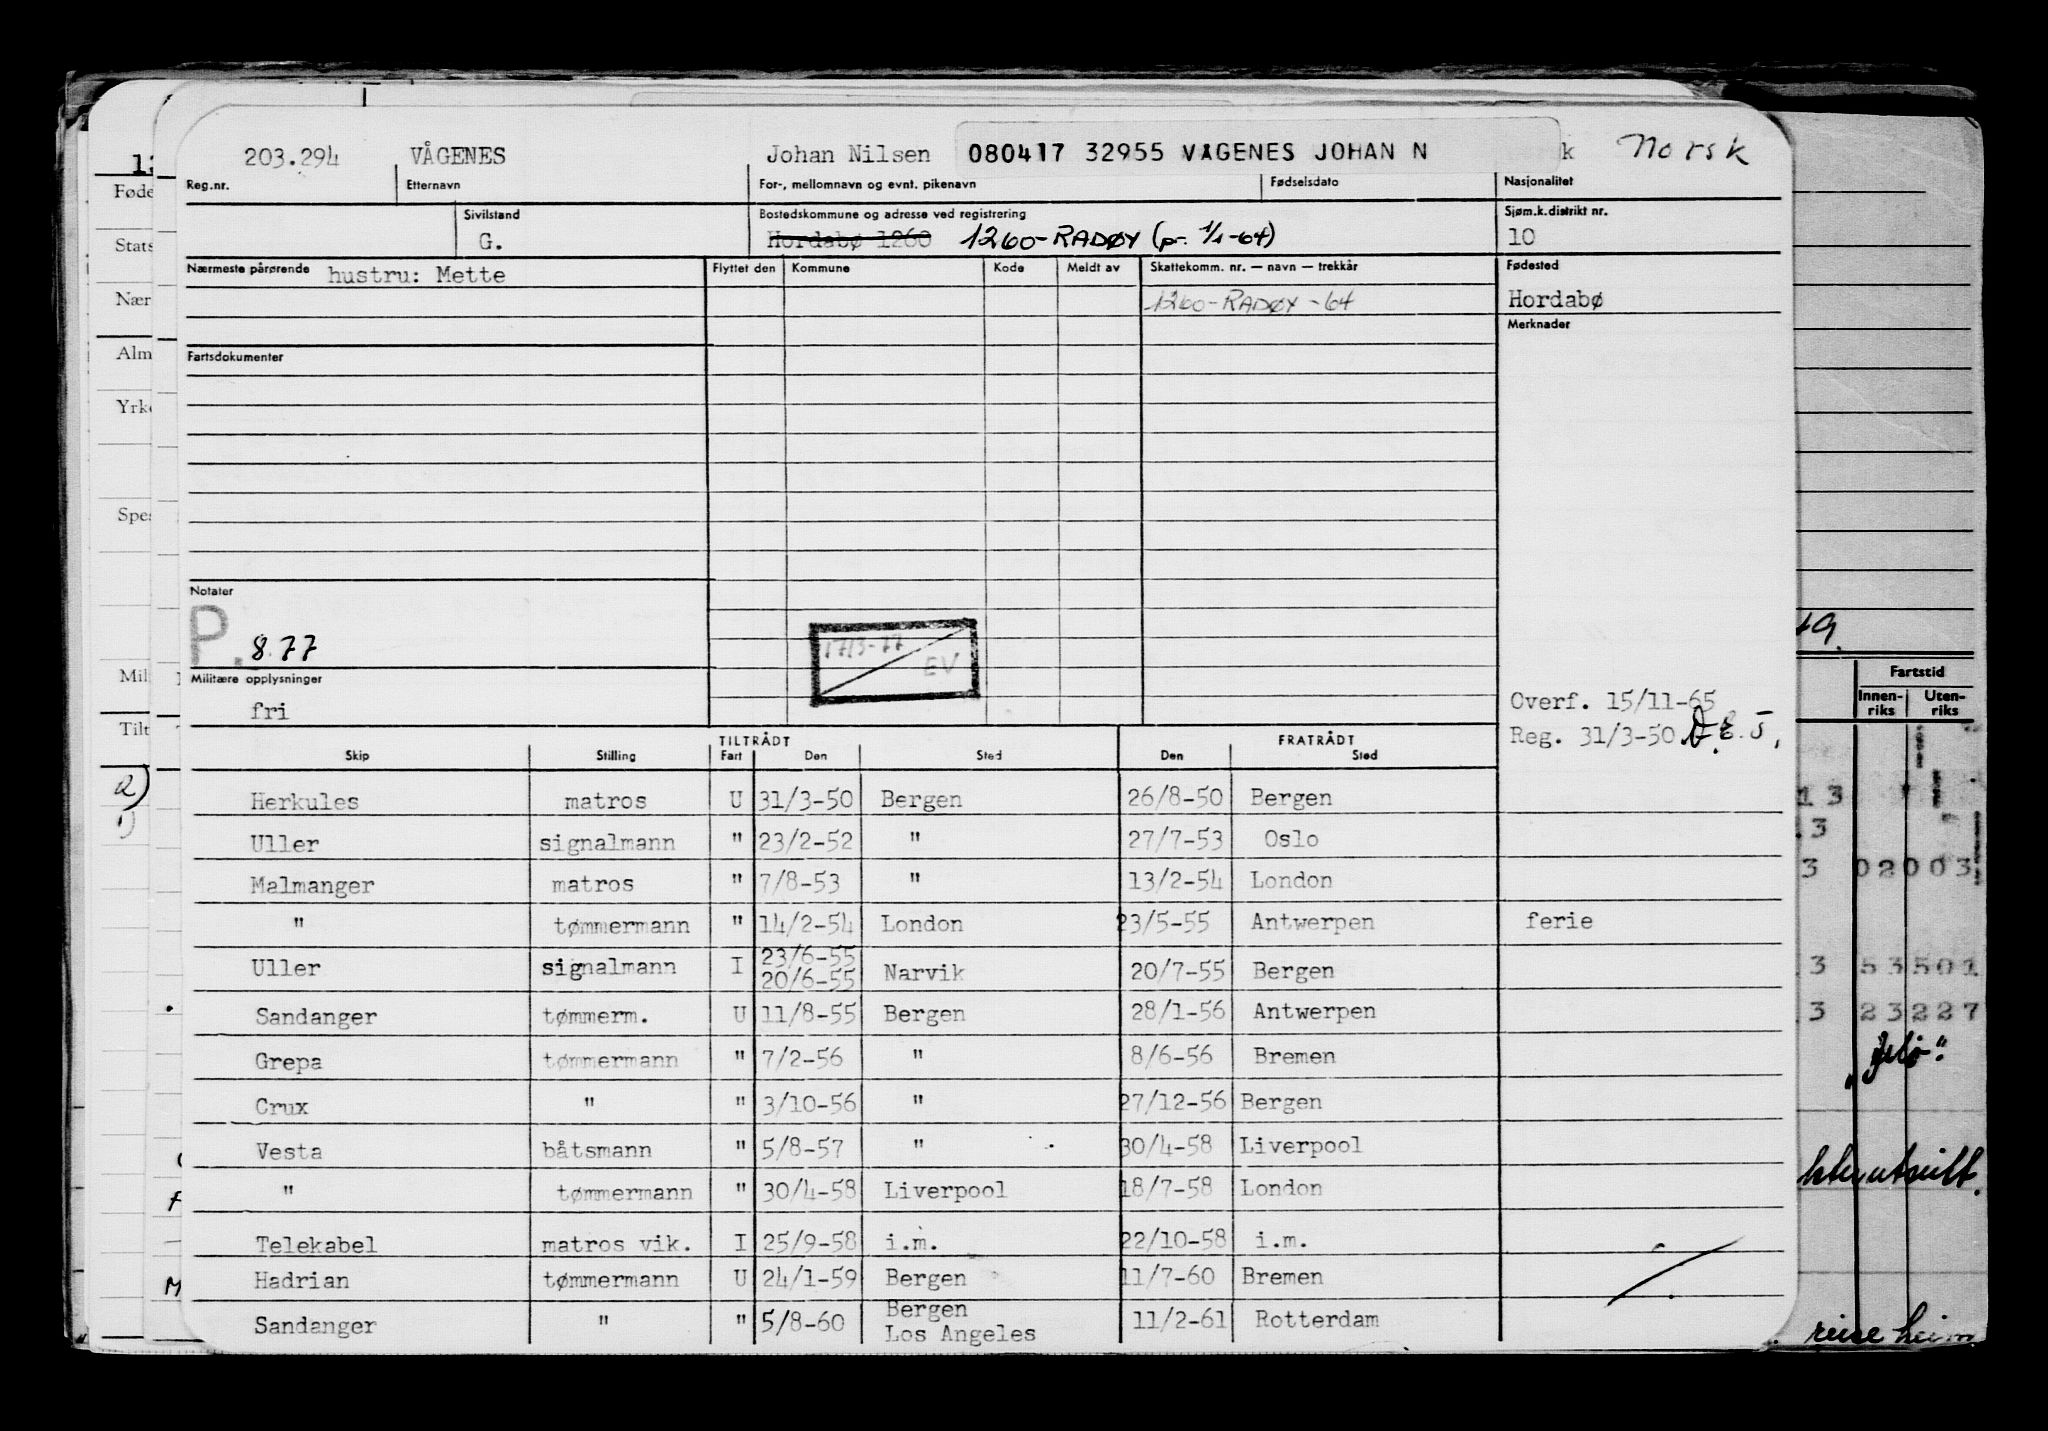 203.294 VÅGENES Johan Nilsen 080417 32955 VÅGENES JOHAN N k Norsk
Reg.nr. Etternavn For-, mellomnavn og evnt. pikenavn Fødselsdato Nasjonalitet
Sivilstand Bostedskommune og adresse ved registrering Sjøm.k.distrikt nr.
G. Hordabø 1260 1260-RADØY (pr. 1/1-64) 10
Nærmeste pårørende hustru: Mette Flyttet den Kommune Kode Meldt av Skattekomm. nr. — navn — trekkår Fødested
1260-RADØY -64 Hordabø
Merknader
Fartsdokumenter
Notater
P. 8.77
17/3-77
EV
Militære opplysninger
fri
Overf. 15/11-65
Reg. 31/3-50
TILTRÅDT FRATRÅDT
Skip Stilling Fart Den Sted Den Sted
Herkules matros U 31/3-50 Bergen 26/8-50 Bergen
Uller signalmann " 23/2-52 " 27/7-53 Oslo
Malmanger matros " 7/8-53 " 13/2-54 London
" tømmermann " 14/2-54 London 23/5-55 Antwerpen ferie
Uller signalmann I 23/6-55 20/6-55 Narvik 20/7-55 Bergen
Sandanger tømmerm. U 11/8-55 Bergen 28/1-56 Antwerpen
Grepa tømmermann " 7/2-56 " 8/6-56 Bremen
Crux " " 3/10-56 " 27/12-56 Bergen
Vesta båtsmann " 5/8-57 " 30/4-58 Liverpool
" tømmermann " 30/4-58 Liverpool 18/7-58 London
Telekabel matros vik. I 25/9-58 i.m. 22/10-58 i.m.
Hadrian tømmermann U 24/1-59 Bergen 11/7-60 Bremen
Sandanger " " 5/8-60 Bergen Los Angeles 11/2-61 Rotterdam
Føde
Stats
Nær
Alm
Yrke
Spes
Mil
Tilt
2)
1)
Fartstid
Innen-riks Uten-riks
13
3
3 02003
3 53501
3 23227
reise heim